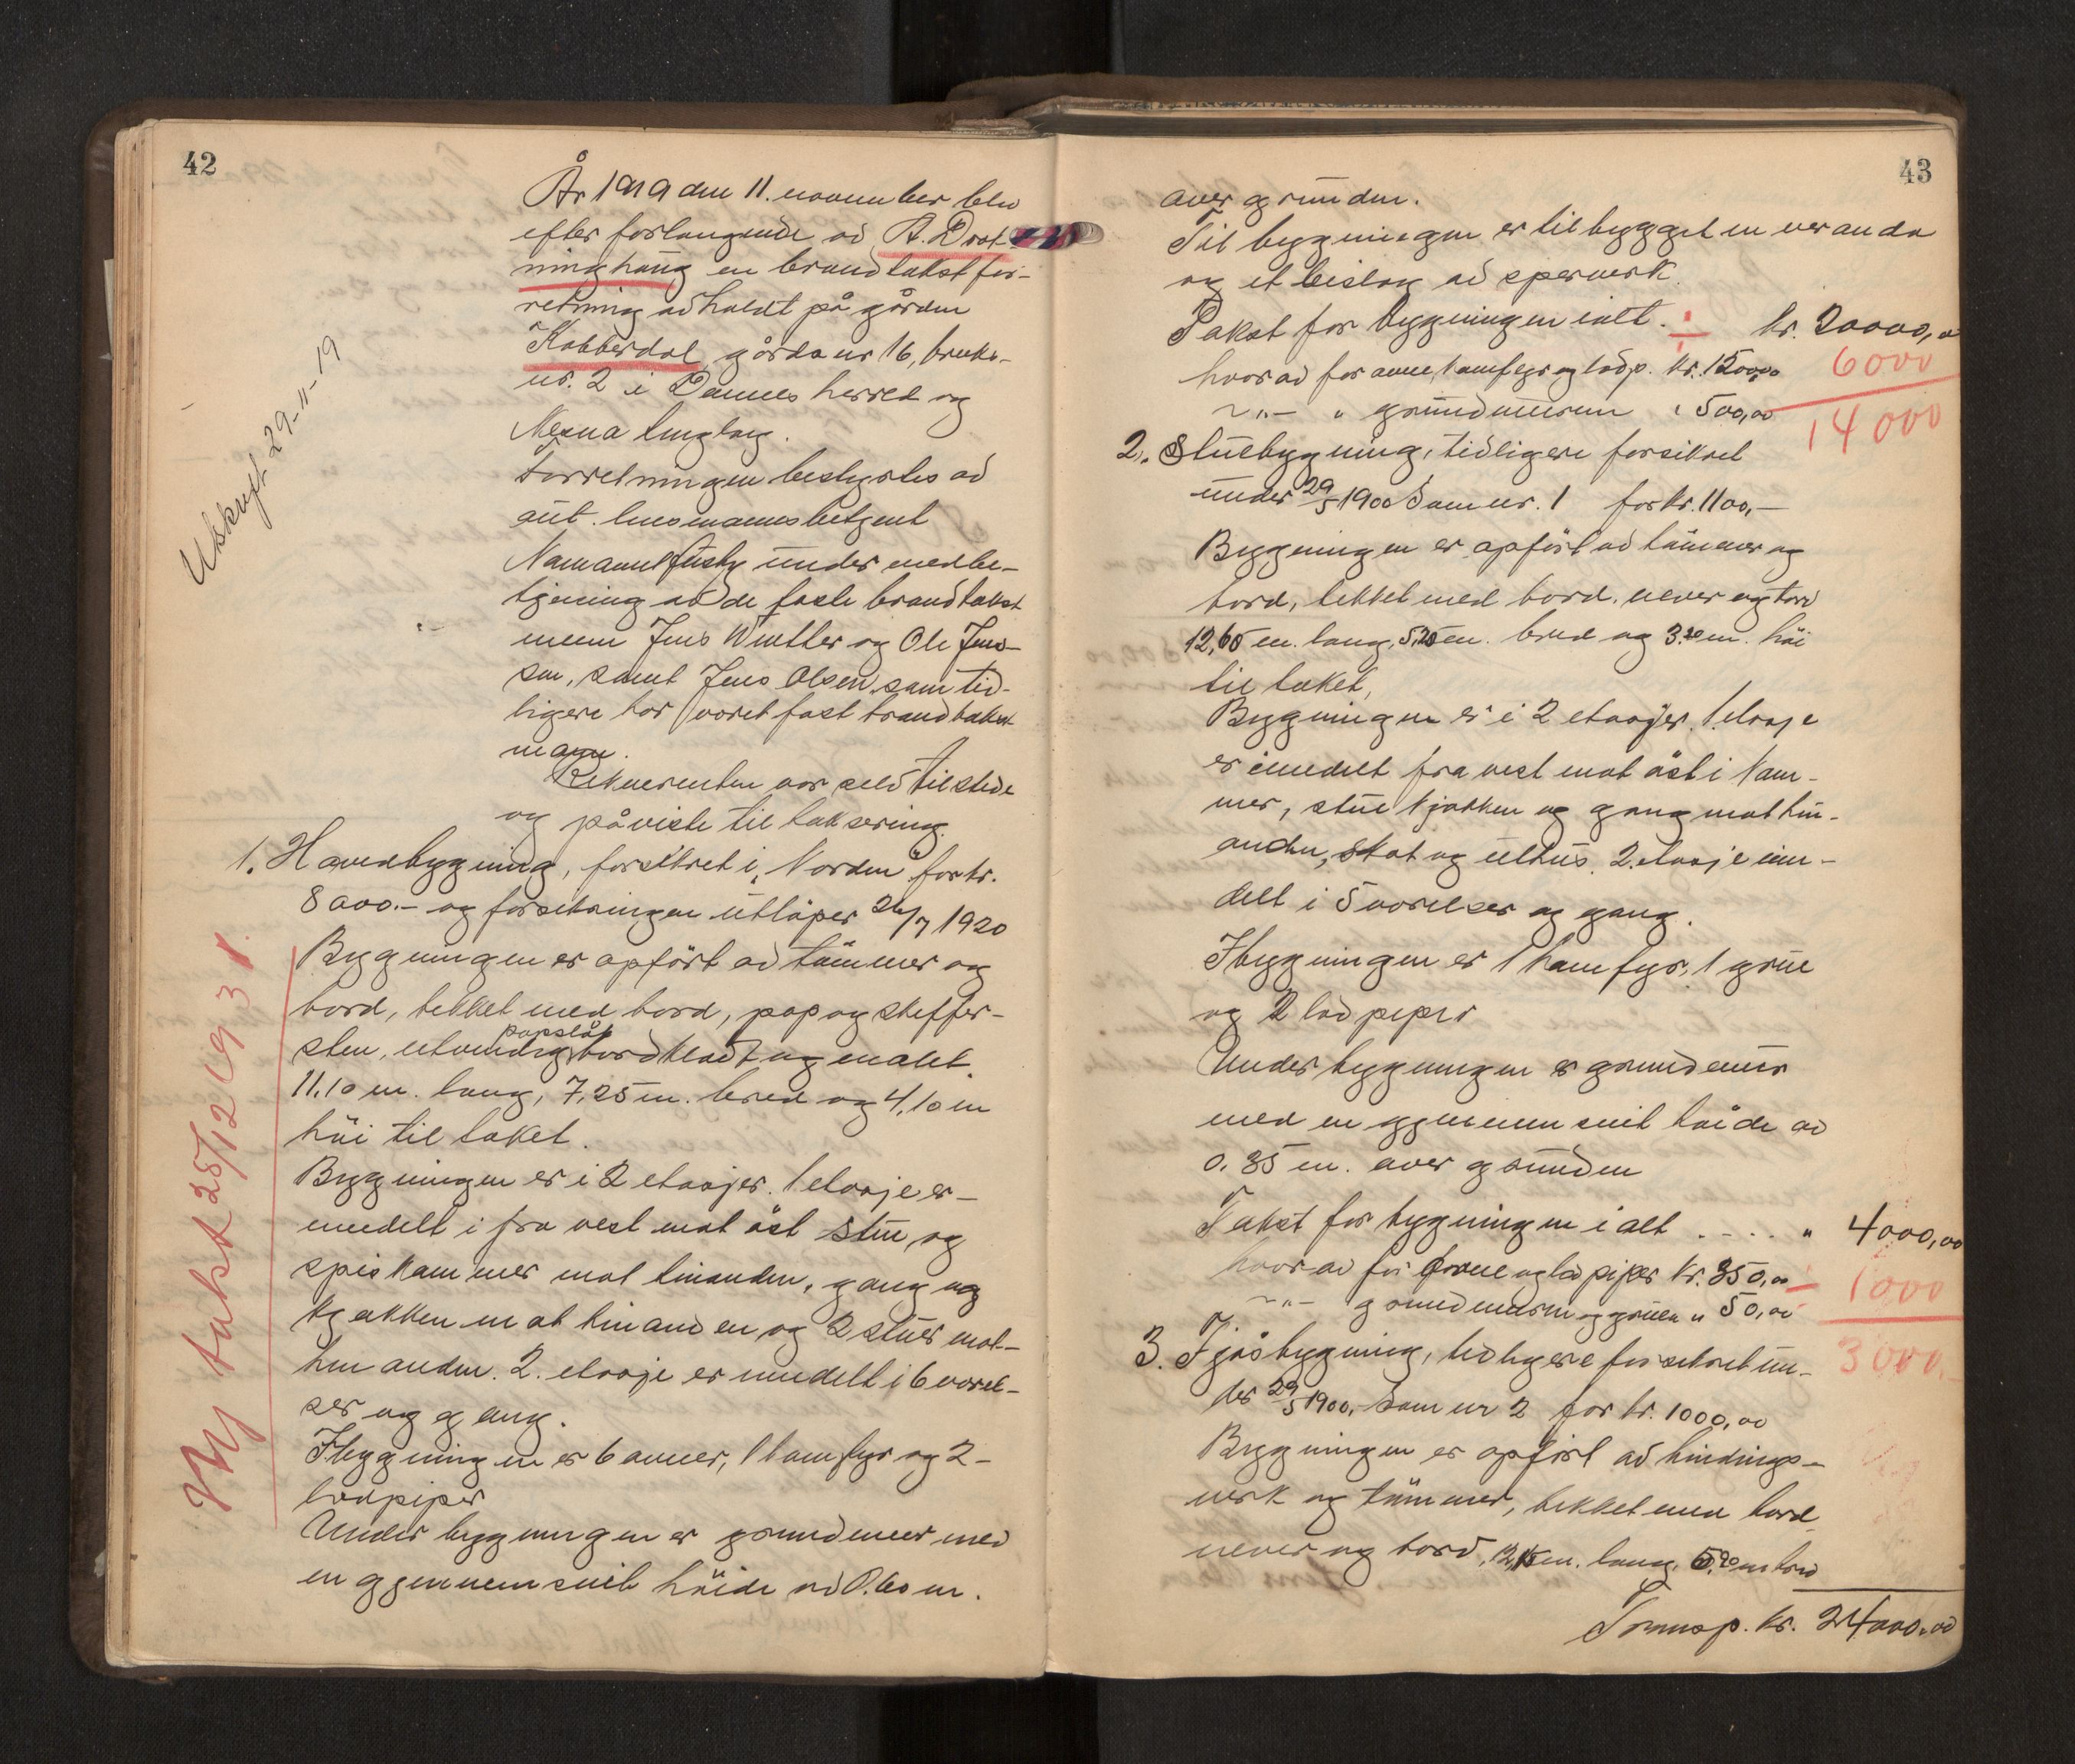 42
År 1919 den 11. november blev
efter forlangende av A. Drot-
ninghaug en brandtakst for-
retning avholdt på gården
Kobberdal gårds nr 16, bruks-
nr. 2 i Dønnes herred og
Nesna tinglag.
Forretningen bestyrtes av
aut. lensmannsbetjent
under medbe-
tjening av de faste brandtakst
menn Jens Winther og Ole Jens-
sen, samt Jens Olsen som tid-
ligere har været fast brandtakst
mann.
Rekvirenten var selv tilstede
og påviste til taksering.
Utskrift 29-11-19
1. Hovedbygning, forsikret i "Norden" for kr.
8000.- og forsikringen utløper 26/7 1920
Bygningen er opført av tømmer og
bord, tekket med bord, pap og skiffer-
papslåt
sten, utvendig bordklædt og malet.
11,10 m. lang, 7,25 m. bred og 4,10 m
høi til taket.
Bygningen er i 2 etasjer. 1 etasje er-
inndelt i fra vest mot øst stue, og
spiskammer mot hinanden, gang og
kjøkken mot hinanden og 2 stuer mot-
hinanden. 2. etasje er inndelt i 6 værel-
ser og gang.
I bygningen er 6 ovner, 1 kamfyr og 2-
lodpiper
Under bygningen er grundmur med
en gjennemsnit høide av 0.60 m.
Ny takst 28/12 1931.
43
over grunden.
Til bygningen er tilbygget en veranda
og et bislag av sperverk.
Takst for bygningen ialt. ÷ kr. 20000,00
6000
hvorav for ovne, kamfyr og lodp. kr. 1500,00
14000
-"- " grundmuren " 500,00
2. Stuebygning, tidligere forsikret
under 29/5 1900 som nr. 1 for kr. 1100,-
Bygningen er opført av tømmer og
bord, tekket med bord, never og torv
12,65 m. lang, 5,25 m. bred og 3.20 m. høi
til taket,
Bygningen er i 2 etasjer. 1. etasje
er inndelt fra vest mot øst i kam-
mer, stue kjøkken og gang mot hin-
anden, skot og ulhus. 2. etasje inn-
delt i 5 værelser og gang.
I bygningen er 1 kamfyr, 1 grue
og 2 lodpiper
Under bygningen er grundmur
med en gjennemsnit høide av
0.35 m. over grunden
Takst for bygningen i alt .... " 4000,00
hvorav for ovne og lodpiper kr. 350,00 - 1000
-"- grundmuren og gruen " 50,00
3000.-
3. Fjøsbygning, tidligere forsikret un-
der 29/5 1900,- som nr 2 for kr. 1000,00
Bygningen er opført av bindings-
verk og tømmer, tekket med bord
never og torv, 12,15 m. lang, 5.20 m bred
Transp. kr. 24000.00